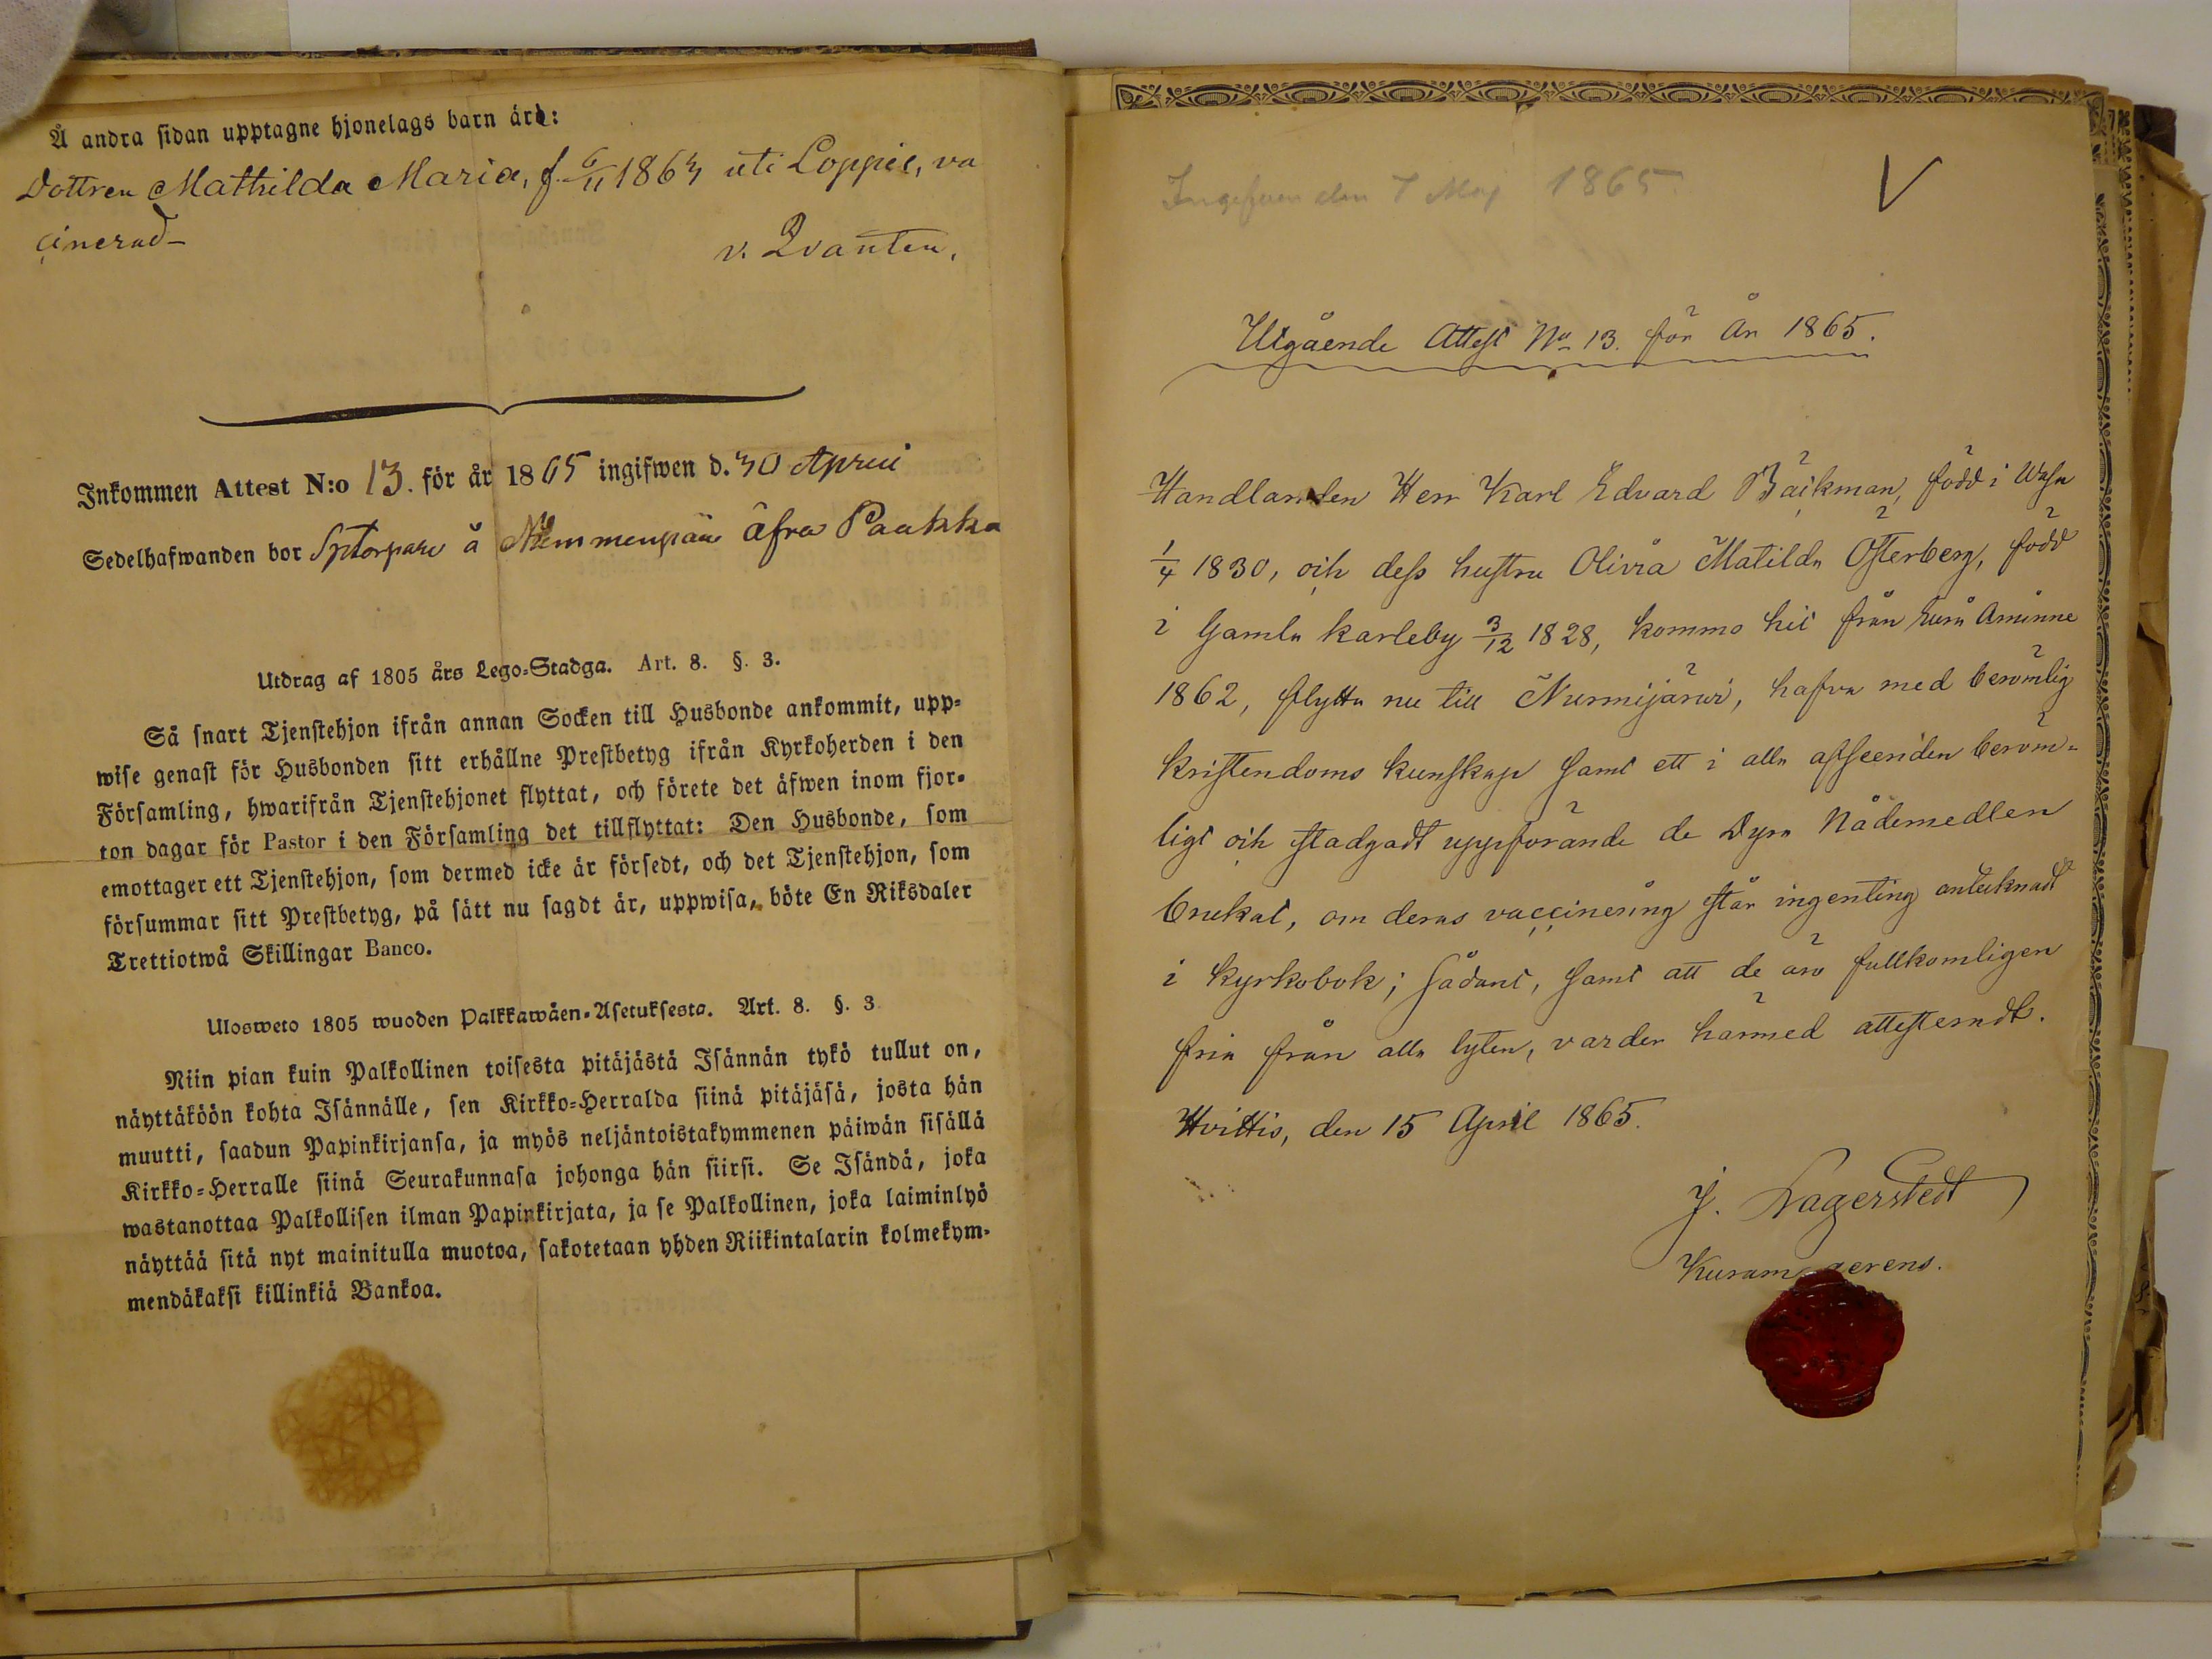 Å andra sidan upptagne hjonelags barn äro:
Dottren Mathilda Maria, f. 6/11 1863 uti Loppis, va
cinerad_
v. Qvanten.
Inkommen Attest N:o 13. för år 1865 ingifwen d. 30 April
Sedelhafwanden bor å Nummenpää Paakka
Utdrag af 1805 års Lego-Stadga. Art. 8. §. 3.
Så snart Tjenstehjon ifrån annan Socken till Husbonde ankommit, upp-
wise genast för Husbonden sitt erhållne Prestbetyg ifrån Kyrkoherden i den
Församling, hwarifrån Tjenstehjonet flyttat, och förete det äfwen inom fjor-
ton dagar för Pastor i den Församling det tillflyttat: Den Husbonde, som
emottager ett Tjenstehjon, som dermed icke är försedt, och det Tjenstehjon, som
försummar sitt Prestbetyg, på sätt nu sagdt är, uppwisa, böte En Riksdaler
Trettiotwå Skillingar Banco.
Ulosweto 1805 wuoden Palkkawäen-Asetuksesta. Art. 8. §. 3.
Niin pian kuin Palkollinen toisesta pitäjästä Isännän tykö tullut on,
näyttäköön kohta Isännälle, sen Kirkko-Herralda siinä pitäjäsä, josta hän
muutti, saadun Papinkirjansa, ja myös neljäntoistakymmenen päiwän sisällä
Kirkko-Herralle siinä Seurakunnasa johonga hän siirsi. Se Isändä, joka
wastanottaa Palkollisen ilman Papinkirjata, ja se Palkollinen, joka laiminlyö
näyttää sitä nyt mainitulla muotoa, sakotetaan yhden Riikintalarin kolmekym-
mendäkaksi killinkiä Bankoa.
Ingifven den 7 Maj 1865
V
Utgående Attest No 13. för År 1865.
Handlanden Herr Karl Edvard Bäckman, född i Wasa
1/4 1830, och dess hustru Olivia Matilda Österberg, född
i Gamla karleby 3/12 1828, kommo hit från Eura Åminne
1862, flytta nu till Nurmijärvi, hafva med berömlig
kristendoms kunskap samt ett i alla afseenden beröm-
ligt och stadgadt uppförande de Dyra Nådemedlen
brukat, om deras vaccinering står ingenting antecknadt
i kyrkobok; sådant, samt att de äro fullkomligen
fria från alla lyten, varder härmed attesteradt.
Hvittis, den 15 April 1865.
J. Lagerstedt
Kuram gerens.